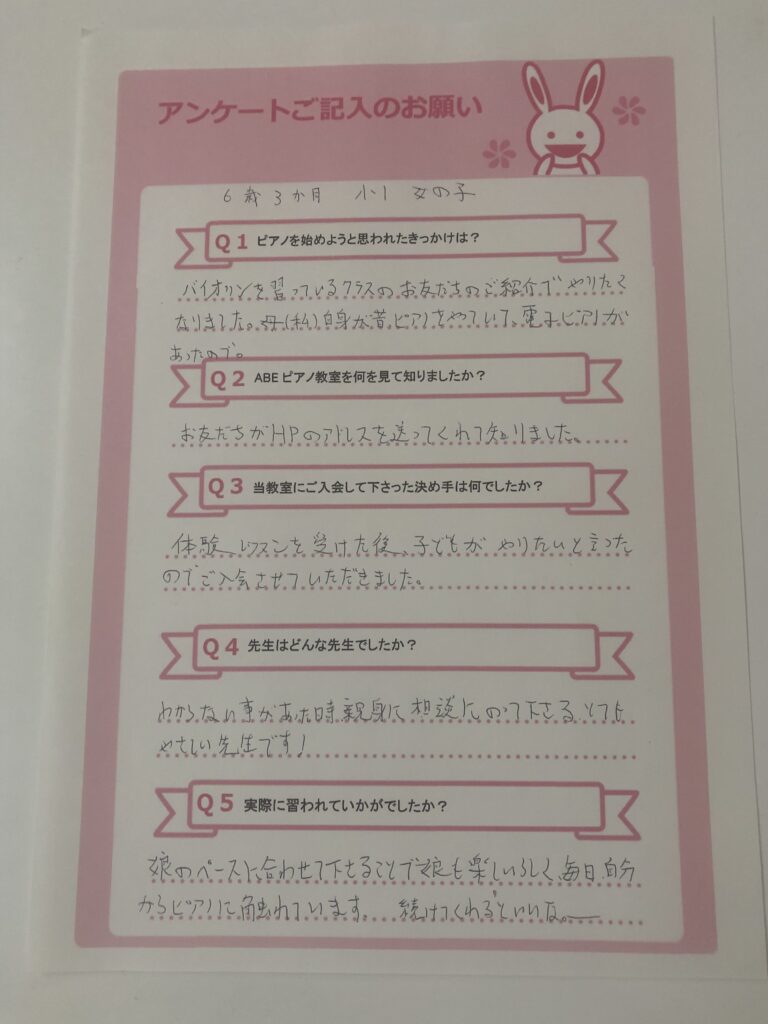 アンケートご記入のお願い
6歳3か月 小1 女の子
Q1 ピアノを始めようと思われたきっかけは？
バイオリンを習っているクラスのお友だちのご紹介でやりたく
なりました。母(私)自身が昔ピアノをやっていて、電子ピアノが
あったので。
Q2 ABEピアノ教室を何を見て知りましたか？
お友だちがHPのアドレスを送ってくれて知りました。
Q3 当教室にご入会して下さった決め手は何でしたか？
体験レッスンを受けた後、子どもがやりたいと言った
のでご入会させていただきました。
Q4 先生はどんな先生でしたか？
わからない事があった時親身に相談にのって下さるとても
やさしい先生です！
Q5 実際に習われていかがでしたか？
娘のペースに合わせて下さることで娘も楽しいらしく、毎日自分
からピアノに触れています。 続けてくれるといいな。